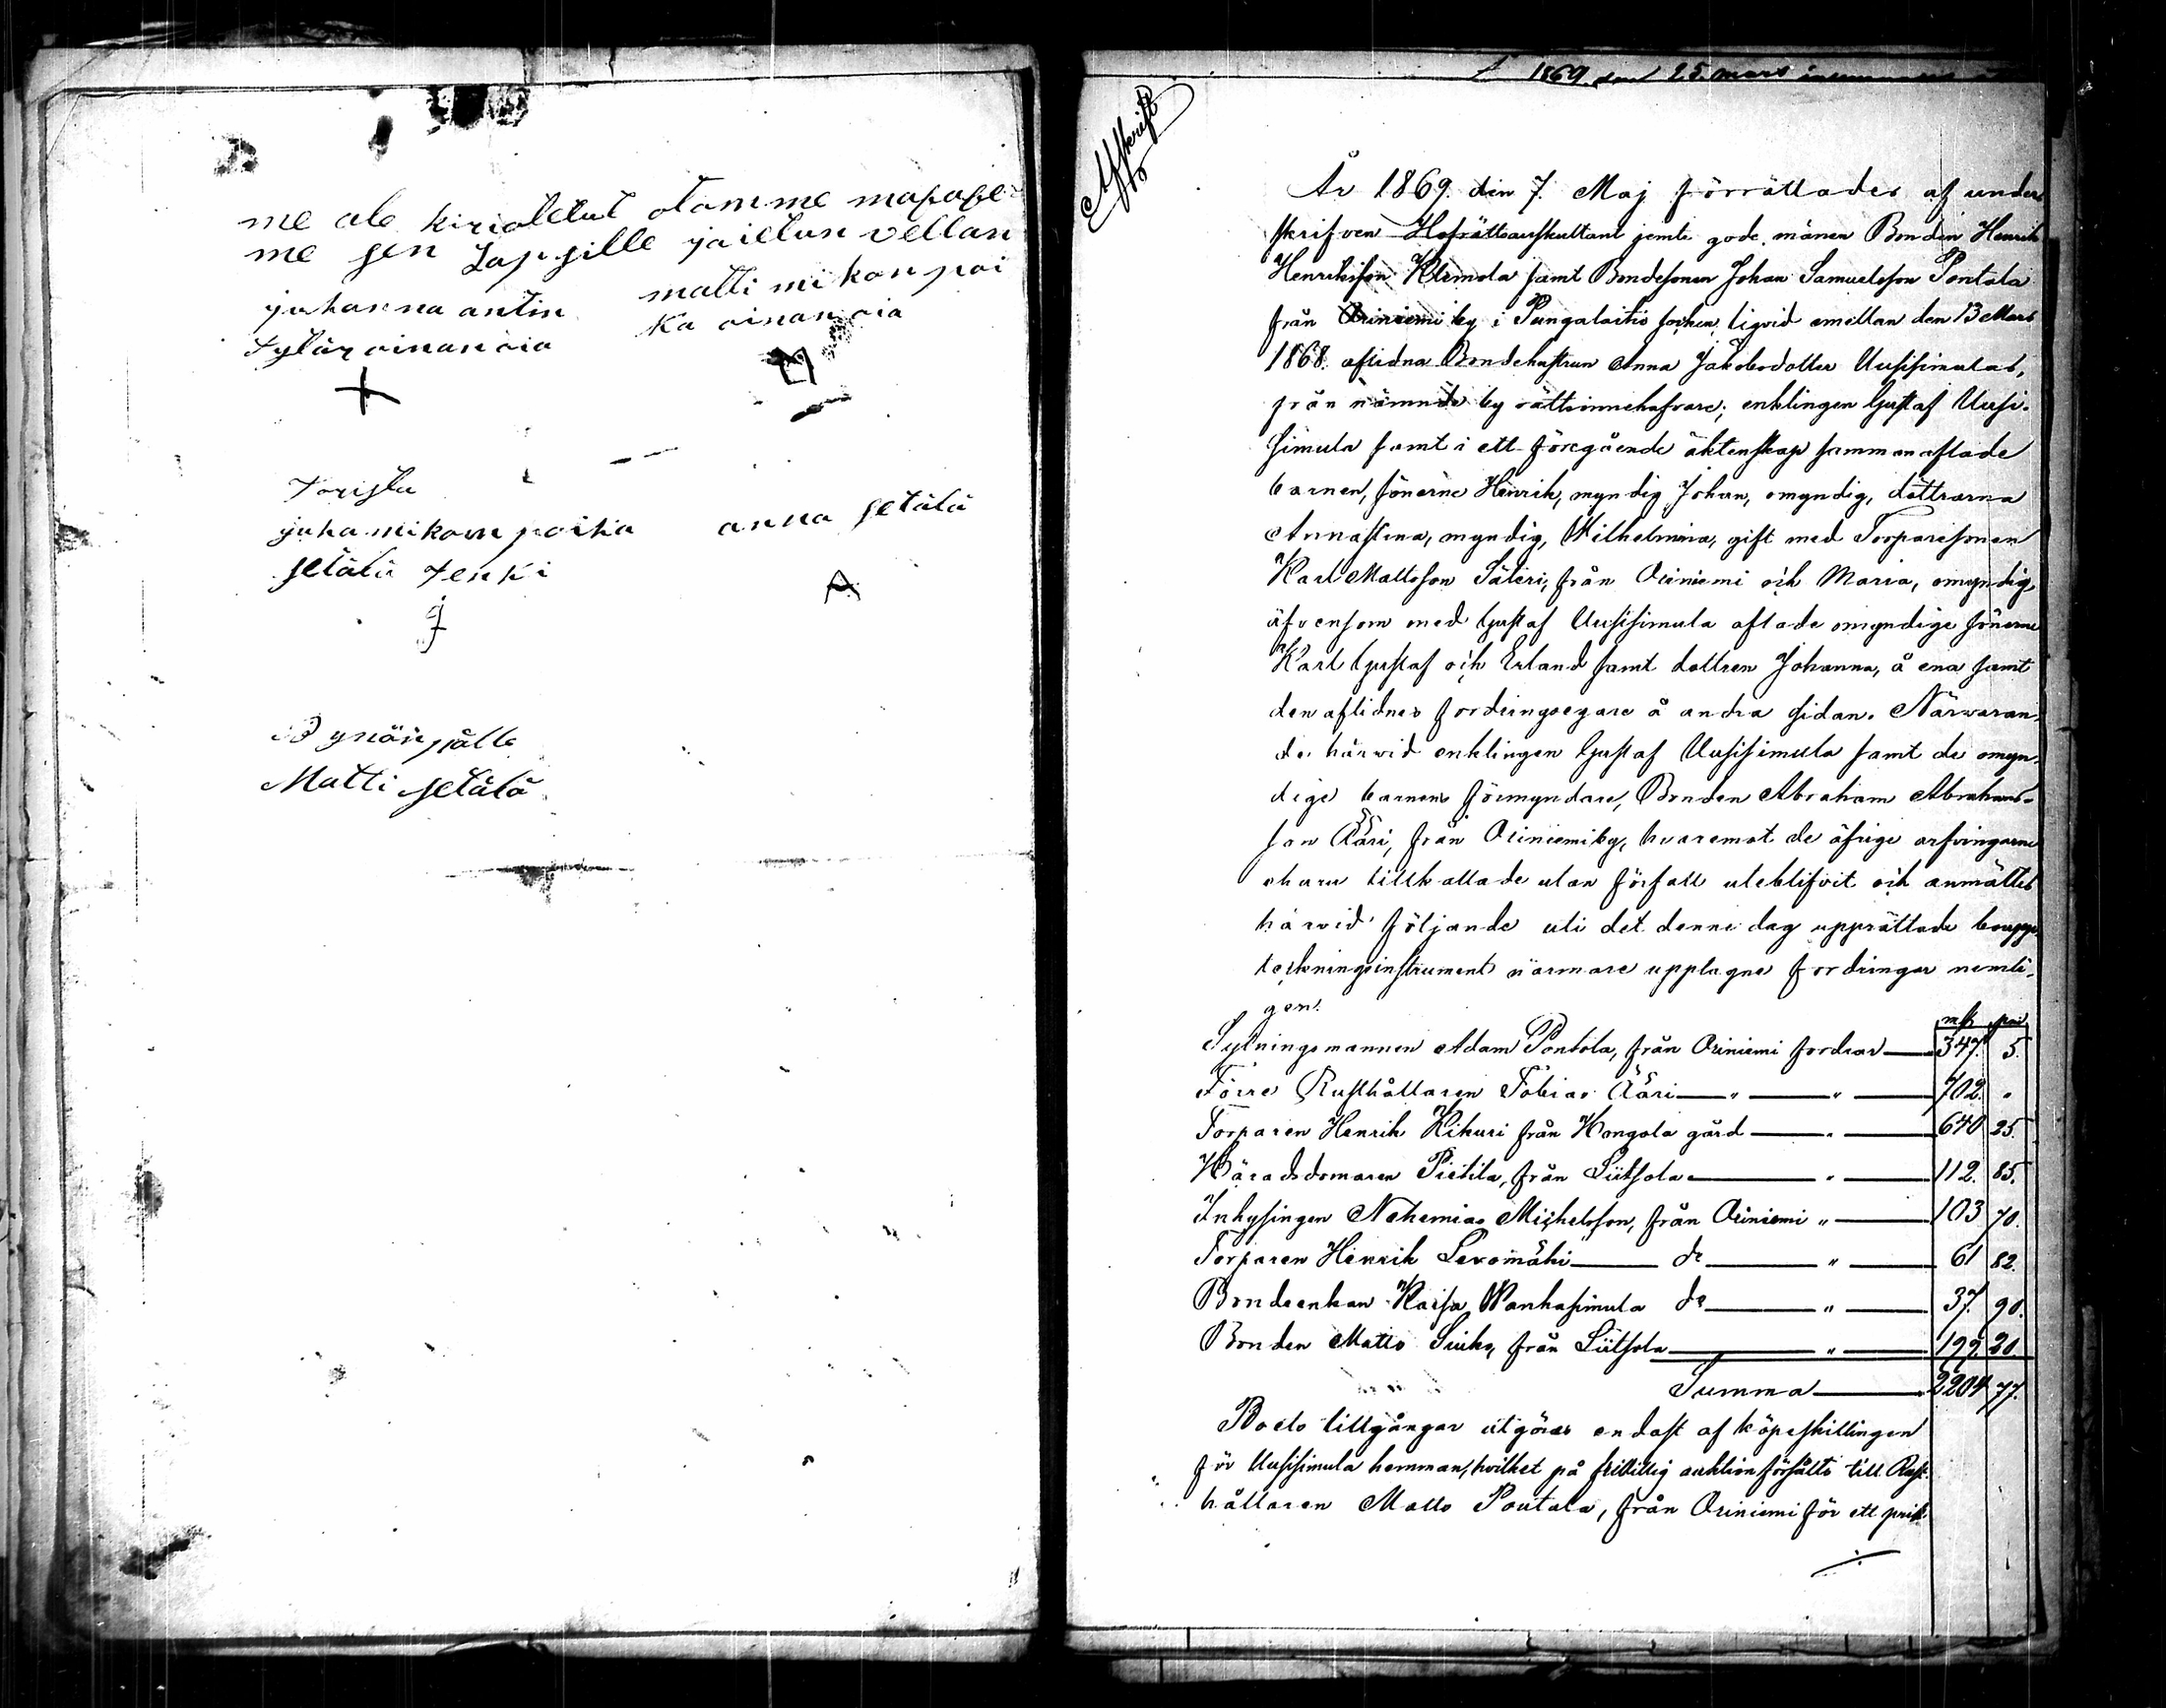 me ale kirioitetut otamme
me sen Lapsille ja ielun vellan
juhanna antin
tytär ainanaia
matti mikon poi
ka ainanaia
toristu
juha mikon poika
setälä tenki
anna setälä
Matti setälä
1869 den 25 mars
Afskrift
År 1869. den 7. Maj förrättades af under
skrifven Hofrättsauskultant jemte gode mänen Bonden Henrik
Henriksson Klemola samt Bondesonen Johan Samuelsson Pontola
från Oriniemi by i Pungalaitio socken liqvid emellan den 13 Mars
1868. aflidna Bondehustrun Anna Jakobsdotter Uusisimulas,
från nämnde by rättsinnehafvare; enklingen Gustaf Uusi-
simula samt i ett föregående äktenskap sammanaflade
barnen, sönerne Henrik, myndig, Johan, omyndig, döttrarna
Annastina, myndig, Wilhelmina, gift med Torparesonen
Karl Mattsson Säteri, från Oriniemi och Maria, omyndig
äfvensom med Gustaf Uusisimula aflade omyndige sönerne
Karl Gustaf och Erland samt dottren Johanna, å ena samt
den aflidnes fordringsegare å andra sidan. Närvaran-
de härvid enklingen Gustaf Uusisimula samt de omyn-
dige barnens förmyndare, Bonden Abraham Abrahams-
son Ääri, från Oriniemi by, hvaremot de öfrige arfvingarne
ehuru tillkallade utan förfall uteblifvit och anmältes
härvid följande uti det denne dag upprättade boupp-
teckningsinstrument närmare upptagne fordringar nemli-
gen:
mk pi
Sytningsmannen Adam Pontola, från Oriniemi fordrar 347. 5.
Förre Rusthållaren Tobias Ääri " " 702. "
Torparen Henrik Kikuri från Hongola gård " 640 25.
Häradsdomaren Pietila, från Liitsola " 112. 85.
Inhysingen Nehemias Michelsson, från Oriniemi " 103 70.
Torparen Henrik Levomäki do " 61 82.
Bondeenkan Kaisa Wanhasimula do " 37. 90.
Bonden Matts Siuko, från Liitsola " 199. 20.
Summa 2204 77.
Boets tillgångar utgöres endast af köpeskillingen
för Uusisimula hemman, hvilket på frivillig auktion försålts till Rust-
hållaren Matts Poutala, från Oriniemi för ett pris